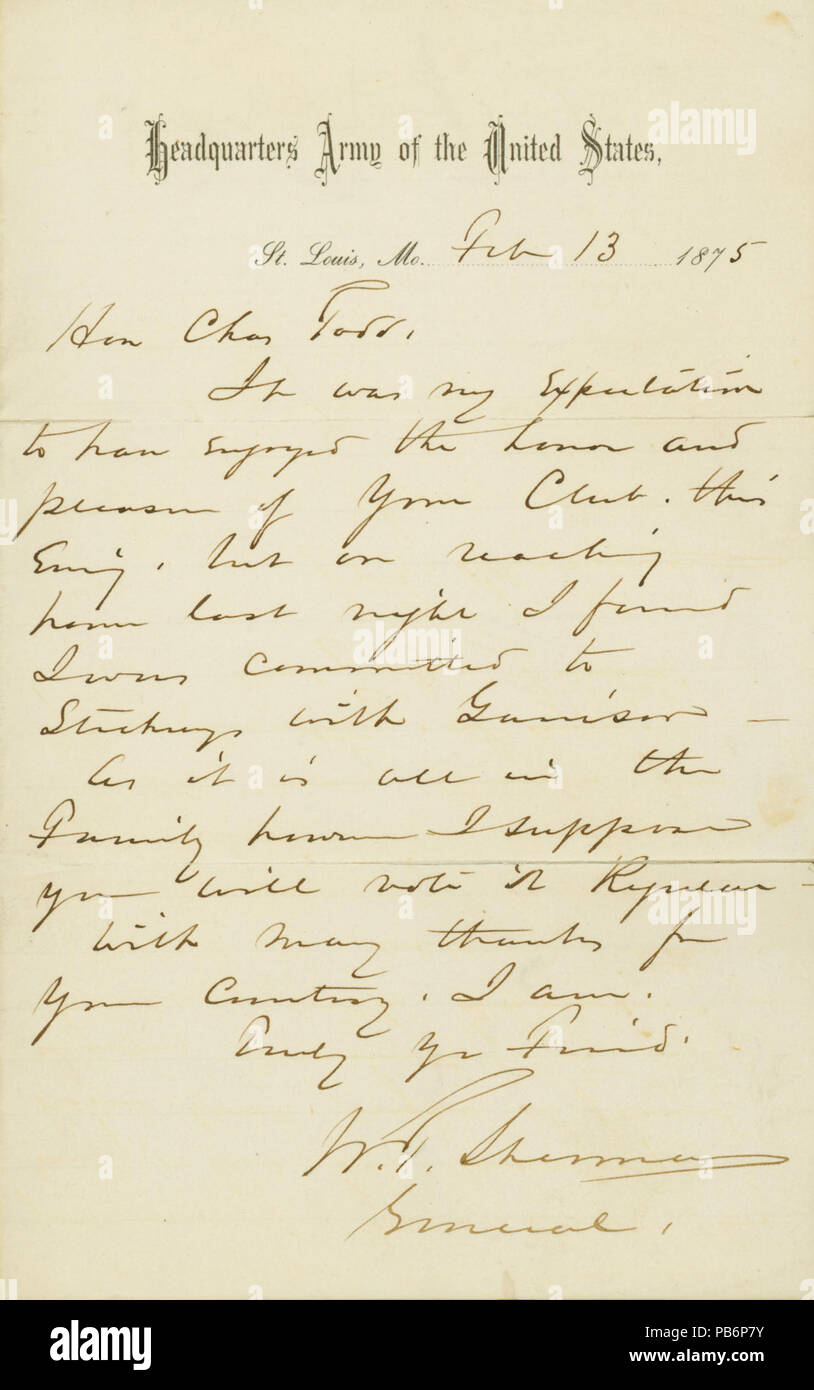 Headquarters Army of the United States,
St. Louis, Mo. Feb 13 1875
Hon Chas Todd.
It was my Expectation
to have enjoyed the honor and
pleasure of your Club this
Evg, but on reaching
home last night I found
I was committed to
with Garrison —
As it is all in the
Family however I suppose
you will vote it Regular —
With many thanks for
Your Courtesy. I am.
Truly Yr Friend.
W. T. Sherman
General.
alamy
Image ID: PB6P7Y
www.alamy.com